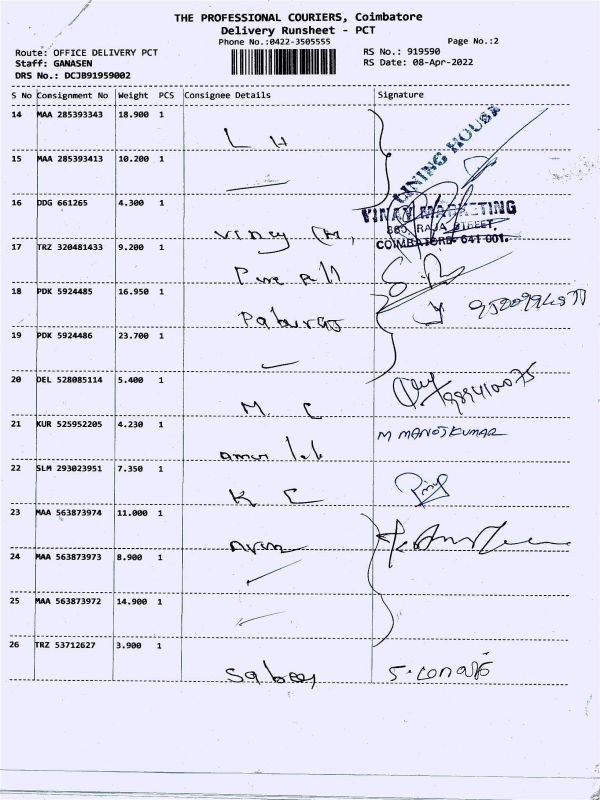 THE PROFESSIONAL COURIERS, Coimbatore
Delivery Runsheet - PCT
Phone No.:0422-3505555
Page No.:2
Route: OFFICE DELIVERY PCT
RS No.: 919590
Staff: GANASEN
RS Date: 08-Apr-2022
DRS No.: DCJB91959002
S No Consignment No Weight PCS Consignee Details Signature
14 MAA 285393343 18.900 1
L H
LINING HOUSE
15 MAA 285393413 10.200 1
16 DDG 661265 4.300 1
VINAY MARKETING
865, RAJA STREET,
COIMBATORE- 641 001.
17 TRZ 320481433 9.200 1
18 PDK 5924485 16.950 1
19 PDK 5924486 23.700 1
20 DEL 528085114 5.400 1
M. C
21 KUR 525952205 4.230 1
M MANOJKUMAR
22 SLM 293023951 7.350 1
K C
23 MAA 563873974 11.000 1
24 MAA 563873973 8.900 1
25 MAA 563873972 14.900 1
26 TRZ 53712627 3.900 1